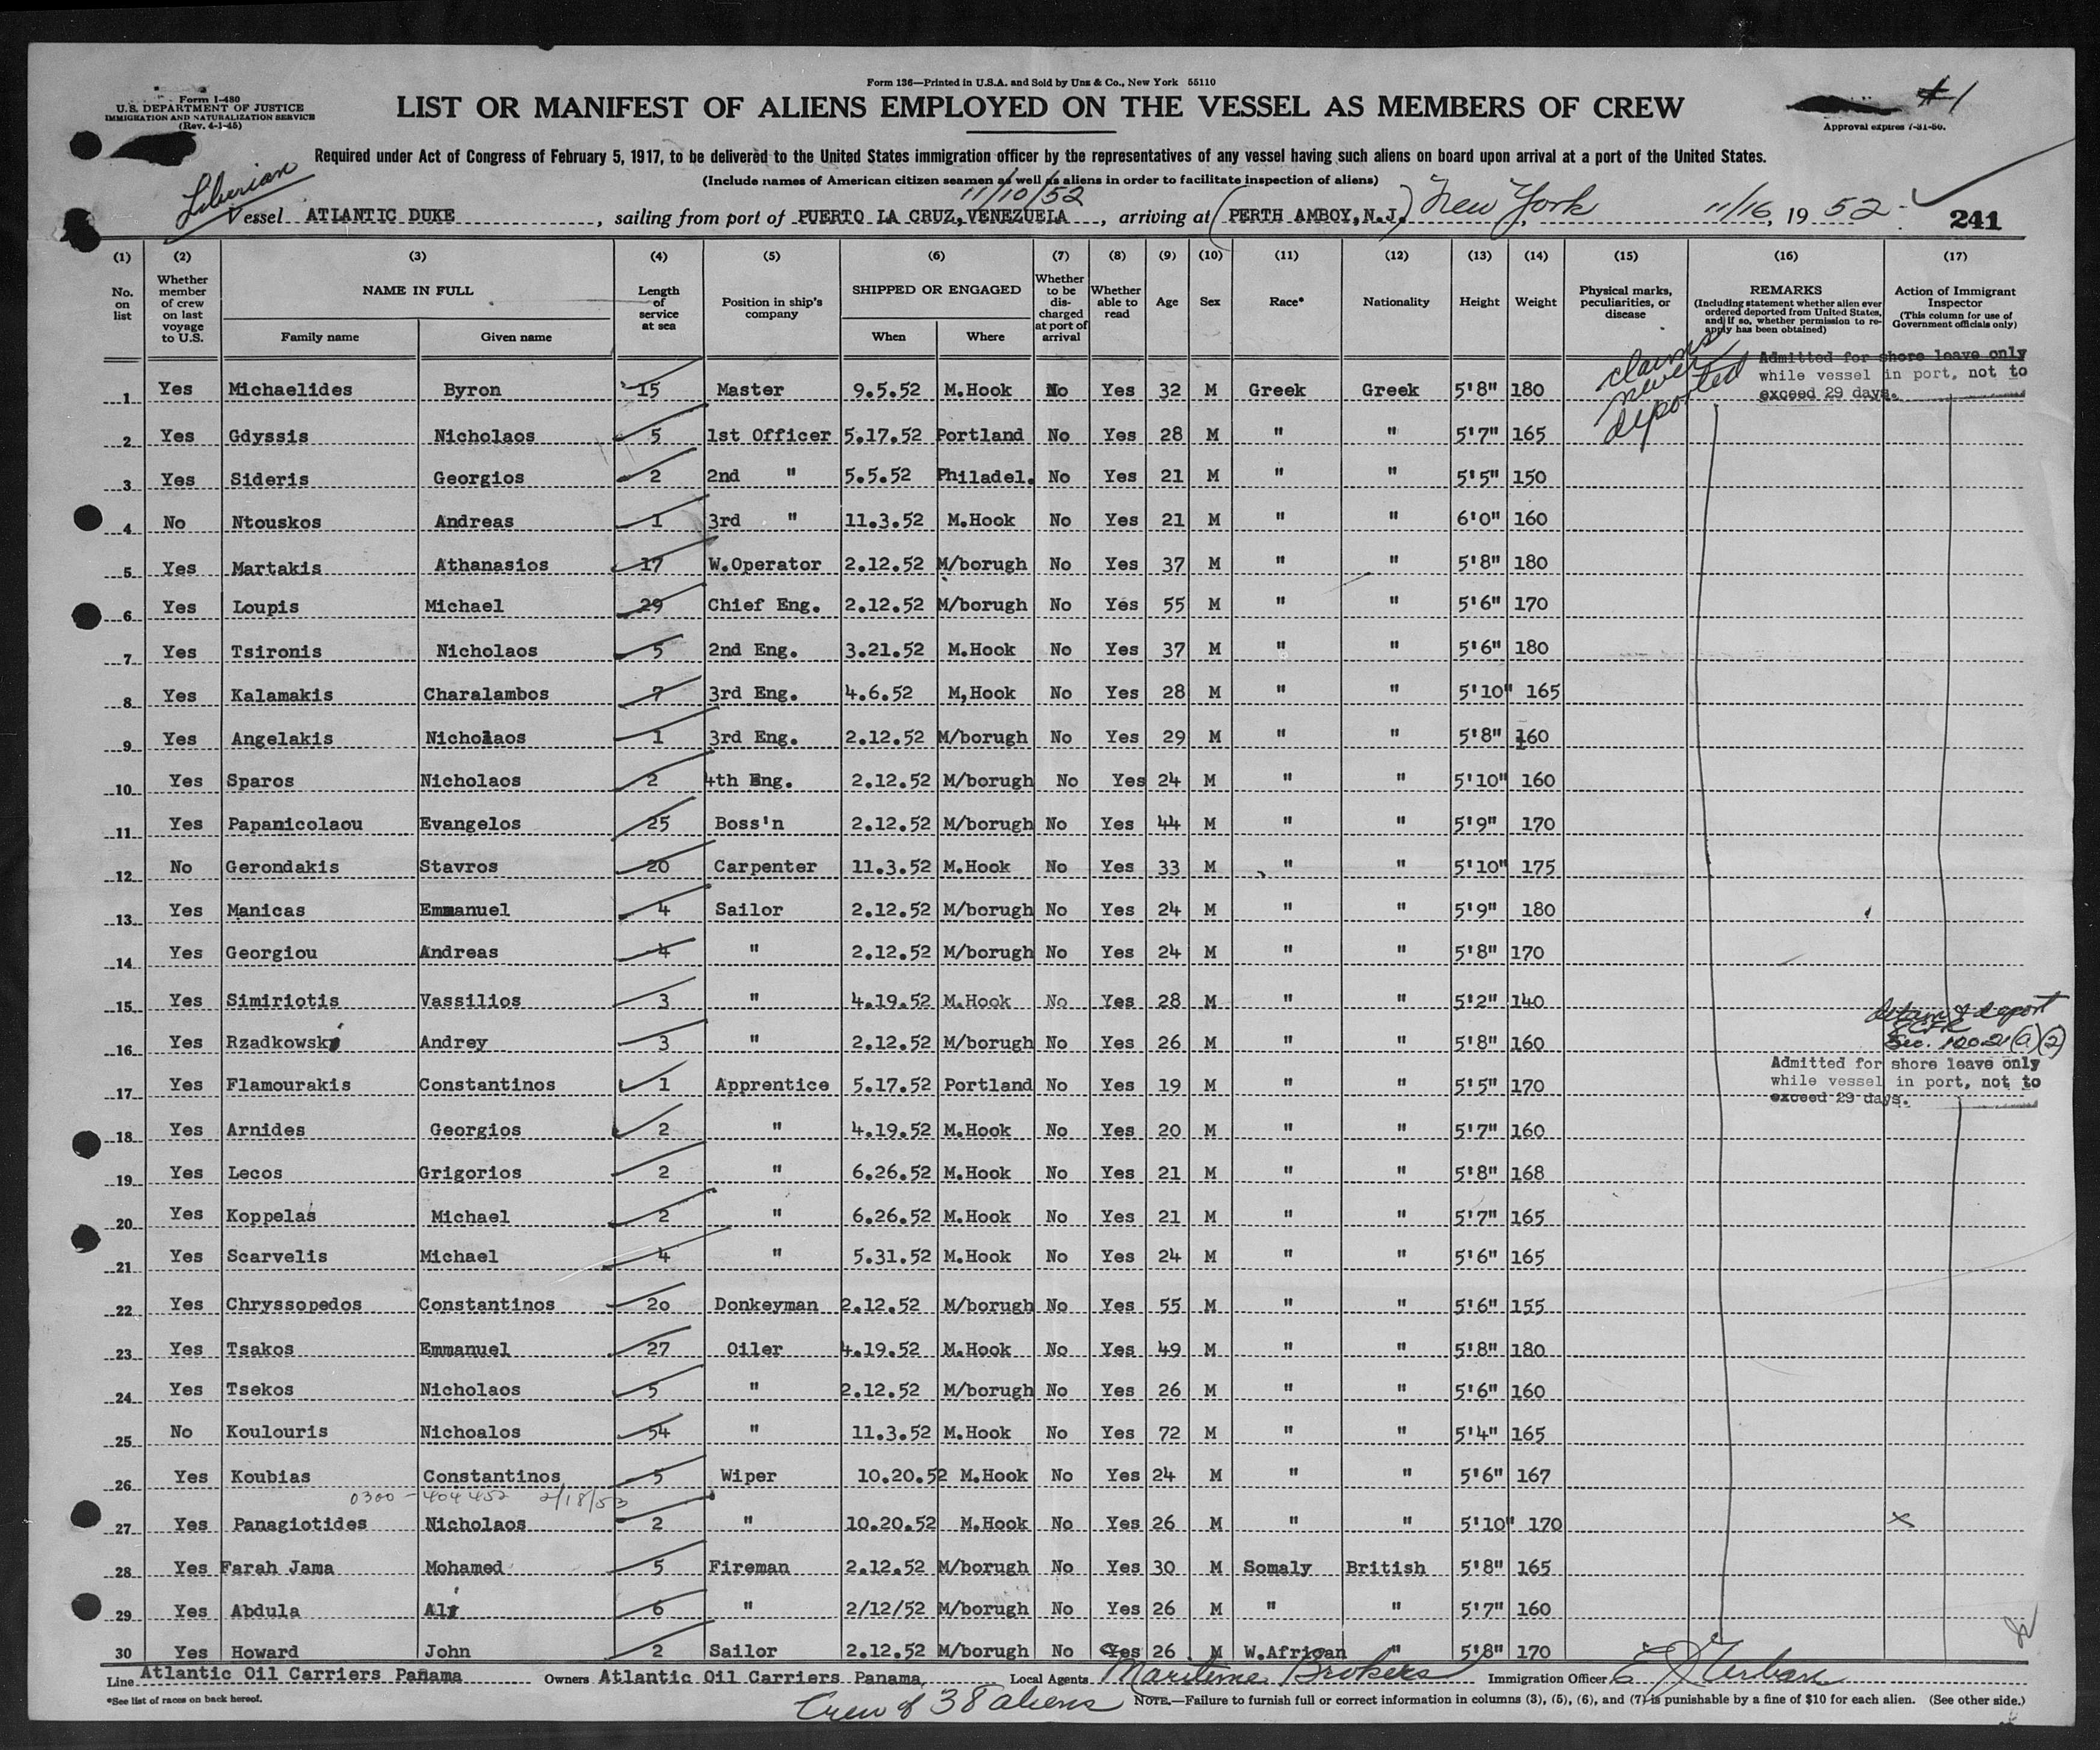 Form 136—Printed in U.S.A. and Sold by Unz & Co., New York 55110
Form I-480
U.S. DEPARTMENT OF JUSTICE
IMMIGRATION AND NATURALIZATION SERVICE
(Rev. 4-1-45)
LIST OR MANIFEST OF ALIENS EMPLOYED ON THE VESSEL AS MEMBERS OF CREW
#1
Approval expires 7-31-50.
Required under Act of Congress of February 5, 1917, to be delivered to the United States immigration officer by the representatives of any vessel having such aliens on board upon arrival at a port of the United States.
(Include names of American citizen seamen as well as aliens in order to facilitate inspection of aliens)
Liberian
11/10/52
Vessel ATLANTIC DUKE, sailing from port of PUERTO LA CRUZ, VENEZUELA, arriving at (PERTH AMBOY, N.J.) New York, 11/16, 19 52
241
(1) (2) (3) (4) (5) (6) (7) (8) (9) (10) (11) (12) (13) (14) (15) (16) (17)
No. on list
Whether member of crew on last voyage to U.S.
NAME IN FULL
Family name Given name
Length of service at sea
Position in ship's company
SHIPPED OR ENGAGED
When Where
Whether to be discharged at port of arrival
Whether able to read
Age Sex Race* Nationality Height Weight
Physical marks, peculiarities, or disease
REMARKS
(Including statement whether alien ever ordered deported from United States, and if so, whether permission to re-apply has been obtained)
Action of Immigrant Inspector
(This column for use of Government officials only)
claims never deported
Admitted for shore leave only
while vessel in port, not to
exceed 29 days.
1 Yes Michaelides Byron 15 Master 9.5.52 M.Hook No Yes 32 M Greek Greek 5'8" 180
2 Yes Gdyssis Nicholaos 5 1st Officer 5.17.52 Portland No Yes 28 M " " 5'7" 165
3 Yes Sideris Georgios 2 2nd " 5.5.52 Philadel. No Yes 21 M " " 5'5" 150
4 No Ntouskos Andreas 1 3rd " 11.3.52 M.Hook No Yes 21 M " " 6'0" 160
5 Yes Martakis Athanasios 17 W.Operator 2.12.52 M/borugh No Yes 37 M " " 5'8" 180
6 Yes Loupis Michael 29 Chief Eng. 2.12.52 M/borugh No Yes 55 M " " 5'6" 170
7 Yes Tsironis Nicholaos 5 2nd Eng. 3.21.52 M.Hook No Yes 37 M " " 5'6" 180
8 Yes Kalamakis Charalambos 7 3rd Eng. 4.6.52 M,Hook No Yes 28 M " " 5'10" 165
9 Yes Angelakis Nicholaos 1 3rd Eng. 2.12.52 M/borugh No Yes 29 M " " 5'8" 160
10 Yes Sparos Nicholaos 2 4th Eng. 2.12.52 M/borugh No Yes 24 M " " 5'10" 160
11 Yes Papanicolaou Evangelos 25 Boss'n 2.12.52 M/borugh No Yes 44 M " " 5'9" 170
12 No Gerondakis Stavros 20 Carpenter 11.3.52 M.Hook No Yes 33 M " " 5'10" 175
13 Yes Manicas Emmanuel 4 Sailor 2.12.52 M/borugh No Yes 24 M " " 5'9" 180
14 Yes Georgiou Andreas 4 " 2.12.52 M/borugh No Yes 24 M " " 5'8" 170
15 Yes Simiriotis Vassilios 3 " 4.19.52 M.Hook No Yes 28 M " " 5'2" 140
16 Yes Rzadkowski Andrey 3 " 2.12.52 M/borugh No Yes 26 M " " 5'8" 160 detain & deport 8 CFR Sec. 120.21(a)(2)
Admitted for shore leave only
while vessel in port, not to
exceed 29 days.
17 Yes Flamourakis Constantinos 1 Apprentice 5.17.52 Portland No Yes 19 M " " 5'5" 170
18 Yes Arnides Georgios 2 " 4.19.52 M.Hook No Yes 20 M " " 5'7" 160
19 Yes Lecos Grigorios 2 " 6.26.52 M.Hook No Yes 21 M " " 5'8" 168
20 Yes Koppelas Michael 2 " 6.26.52 M.Hook No Yes 21 M " " 5'7" 165
21 Yes Scarvelis Michael 4 " 5.31.52 M.Hook No Yes 24 M " " 5'6" 165
22 Yes Chryssopedos Constantinos 20 Donkeyman 2.12.52 M/borugh No Yes 55 M " " 5'6" 155
23 Yes Tsakos Emmanuel 27 Oiler 4.19.52 M.Hook No Yes 49 M " " 5'8" 180
24 Yes Tsekos Nicholaos 5 " 2.12.52 M/borugh No Yes 26 M " " 5'6" 160
25 No Koulouris Nichoalos 54 " 11.3.52 M.Hook No Yes 72 M " " 5'4" 165
26 Yes Koubias Constantinos 5 Wiper 10.20.52 M.Hook No Yes 24 M " " 5'6" 167
0300-404452 2/18/53
27 Yes Panagiotides Nicholaos 2 " 10.20.52 M.Hook No Yes 26 M " " 5'10" 170 x
28 Yes Farah Jama Mohamed 5 Fireman 2.12.52 M/borugh No Yes 30 M Somaly British 5'8" 165
29 Yes Abdula Ali 6 " 2/12/52 M/borugh No Yes 26 M " " 5'7" 160
30 Yes Howard John 2 Sailor 2.12.52 M/borugh No Yes 26 M W.African " 5'8" 170
Line Atlantic Oil Carriers Panama Owners Atlantic Oil Carriers Panama, Local Agents Maritime Brokers Immigration Officer E J Urban
*See list of races on back hereof.
Crew of 38 aliens
NOTE.—Failure to furnish full or correct information in columns (3), (5), (6), and (7) is punishable by a fine of $10 for each alien. (See other side.)